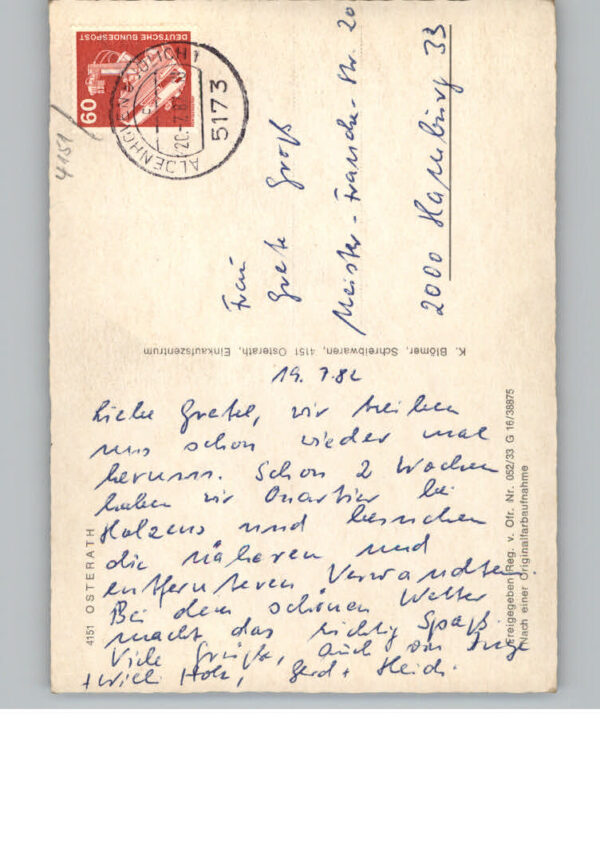 DEUTSCHE BUNDESPOST
60
ALDENHOVEN JÜLICH 1
20.-7.8
5173
4151
Frau
Grete Groß
Meister-Francke-Str. 20
2000 Hamburg 33
K. Blömer, Schreibwaren, 4151 Osterath, Einkaufszentrum
19.7.82
Liebe Gretel, wir treiben
uns schon wieder mal
herum. Schon 2 Wochen
haben wir Quartier bei
Holzens und besuchen
die näheren und
entfernteren Verwandten.
Bei dem schönen Wetter
macht das richtig Spaß.
Viele Grüße, auch von Inge
+ Willi Holz, Gerd + Heidi.
4151 OSTERATH
Freigegeben Reg. v. Ofr. Nr. 052/33 G 16/38875
Nach einer Originalfarbaufnahme